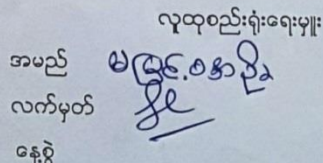 လူထုစည်းရုံးရေးမှူး
အမည် မမြင့်စန္ဒာဦး
လက်မှတ်
နေ့စွဲ